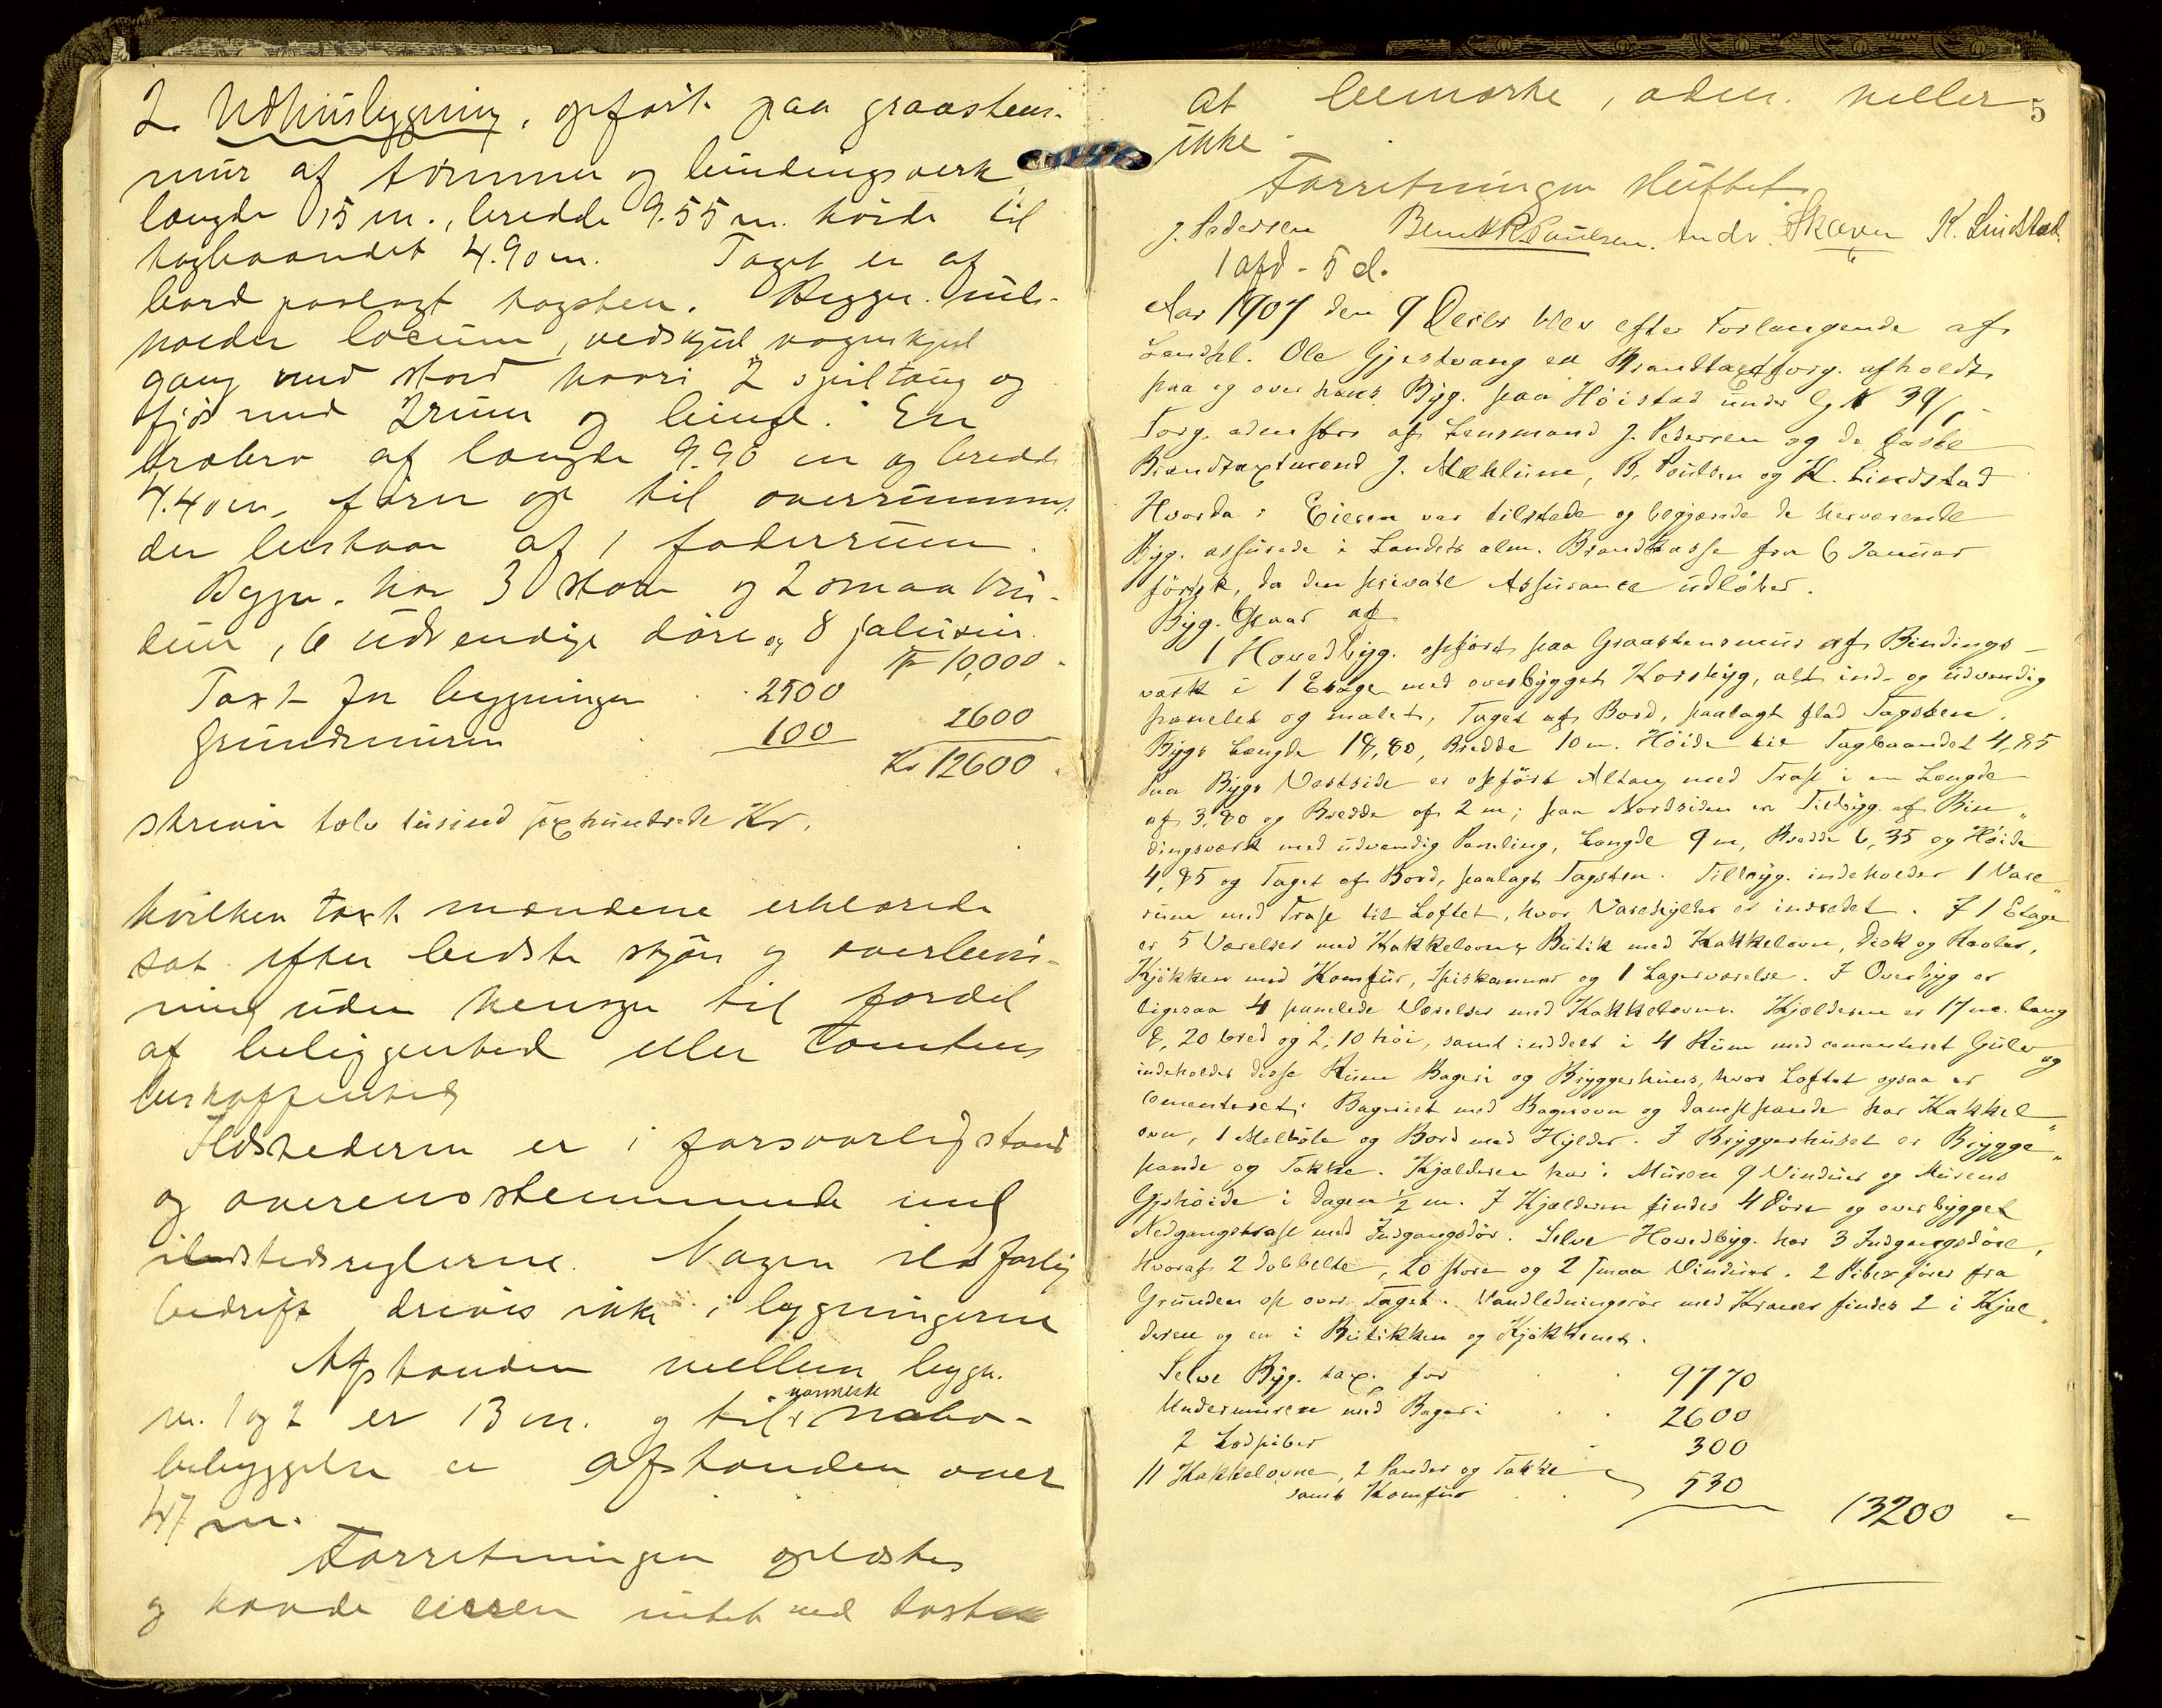 2. Udhusbygning, opført paa graastens-
mur af tømmer og bindingsverk
længde 15 m., bredde 9.55 m. høide til
tagbaandet 4.90 m. Taget er af
bord paalagt tagsten. Byggn. inde-
holder locum, vedskjul vognskjul
gang med stald hvori 2 spiltaug og
fjøs med 2 rum og binge. En
laavebro af længde 9.90 m og bredde
4.40 m, fører op til overrummet
der bestaar af 1 foderrum.
Byggn. har 3 store og 2 smaa vin-
duer, 6 udvendige døre og 8 jalusier.
Tr 10,000.
Taxt for bygningen 2500
Grundmuren 100 2600
Kr 12600.
skriver tolv tusind sexhundrede Kr.
hvilken taxt mændene erklærede
sat efter bedste skjøn og overbevis-
ning uden hensyn til fordel
af beliggenhed eller Tomtens
beskaffenhed
Ildstederne er i forsvarlig stand
og overensstemmende med
ildstedsreglerne. Nogen ildsfarlig
bedrift drives ikke i bygningerne
Afstanden mellem byggn.
nr. 1 og 2 er 13 m. og til nærmeste nabo-
bebyggelse er afstanden over
47 m.
Forretningen oplæstes
og havde eieren intet ved taxten
5
at bemærke, adm. heller
ikke.
Forretningen sluttet.
J. Pedersen Bernt R. Paulsen. Andr. Skaven K. Lindstad.
1 afd - 5 d.
Aar 1907 den 9 Decbr blev efter Forlangende af
Landhl. Ole Gjestvang en Brandtaxtforrg. afholdt
paa og over hans Byg. paa Høistad under Lg N 39/1
Forrg. adm. af Lensmand J. Pedersen og de faste
Brandtaxtmænd J. Mæhlum, B. Poulsen og K. Lindstad
Hvorda: Eieren var tilstede og begjærede de herværende
Byg. assurede i Landets alm. Brandkasse fra 6 Januar
førstk, da den private Assurance udløber.
Byg. bestaar af
1 Hovedbyg. opført paa Graastensmur af Bindings-
værk i 1 Etage med overbygget Korsbyg, alt ind- og udvendig
panelet og malet, Taget af Bord, paalagt flad Tagsten.
Bygs Længde 18,80, Bredde 10 m. Høide til Tagbaandet 4,85
Paa Bygs Vestside er opført Altan med Trap i en Længde
af 3,80 og Bredde af 2 m; paa Nordsiden en Tilbyg. af Bin„
dingsværk med udvendig Paneling, Længde 9 m, Bredde 6,35 og Høide
4,85 og Taget af Bord, paalagt Tagsten. Tilbyg. indeholder 1 Vare„
rum med Trap til Loftet, hvor Varehylder er indredet. I 1 Etage
er 5 Værelser med Kakkelovn, Butik med Kakkelovn, Disk og Reoler,
Kjøkken med Komfur, Spiskammer og 1 Lagerværelse. I Overbyg er
ligesaa 4 panelede Værelser med Kakkelovn. Kjælderen er 17 m. lang
8,20 bred og 2,10 høi, samt inddelt i 4 Rum med cementeret Gulv og
indeholder disse Rum Bageri og Bryggerhuus, hvor Loftet ogsaa er
cementeret; Bageriet med Bagerovn og Damppande har Kakkel„
ovn, 1 Melbøle og Bord med Hylder. I Bryggerhuset er Brygge„
pande og Takke. Kjælderen har i Muren 9 Vinduer og Murens
Gjshøide i Dagen ½ m. I Kjælderen findes 4 Døre og overbygget
Nedgangstrap med Indgangsdør. Selve Hovedbyg. har 3 Indgangsdøre,
hvoraf 2 dobbelte, 20 store og 2 smaa Vinduer. 2 Piber fører fra
Grunden op over Taget. Vandledningsrør med Kraner findes 2 i Kjæl„
deren og en i Butikken og Kjøkkenet.
Selve Byg. tax. for 9770
Undermuren med Bageri 2600
2 Lodpiber 300
11 Kakkelovne, 2 Pander og Takke
samt Komfur 530 13200